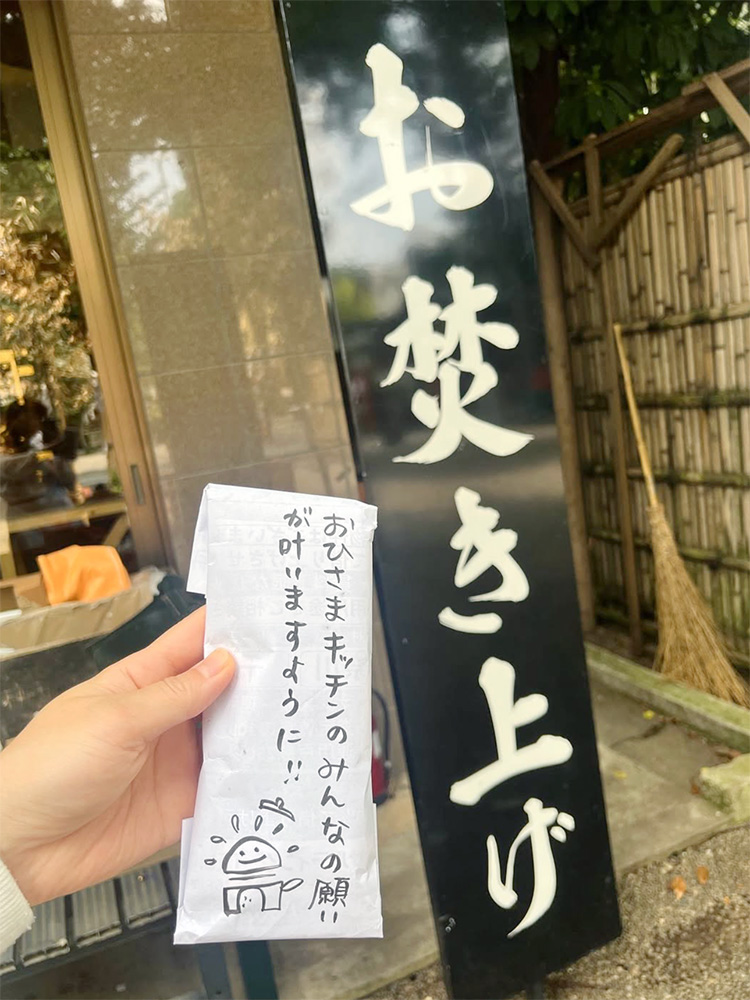 お焚き上げ
おひさまキッチンのみんなの願い
が叶いますように!!